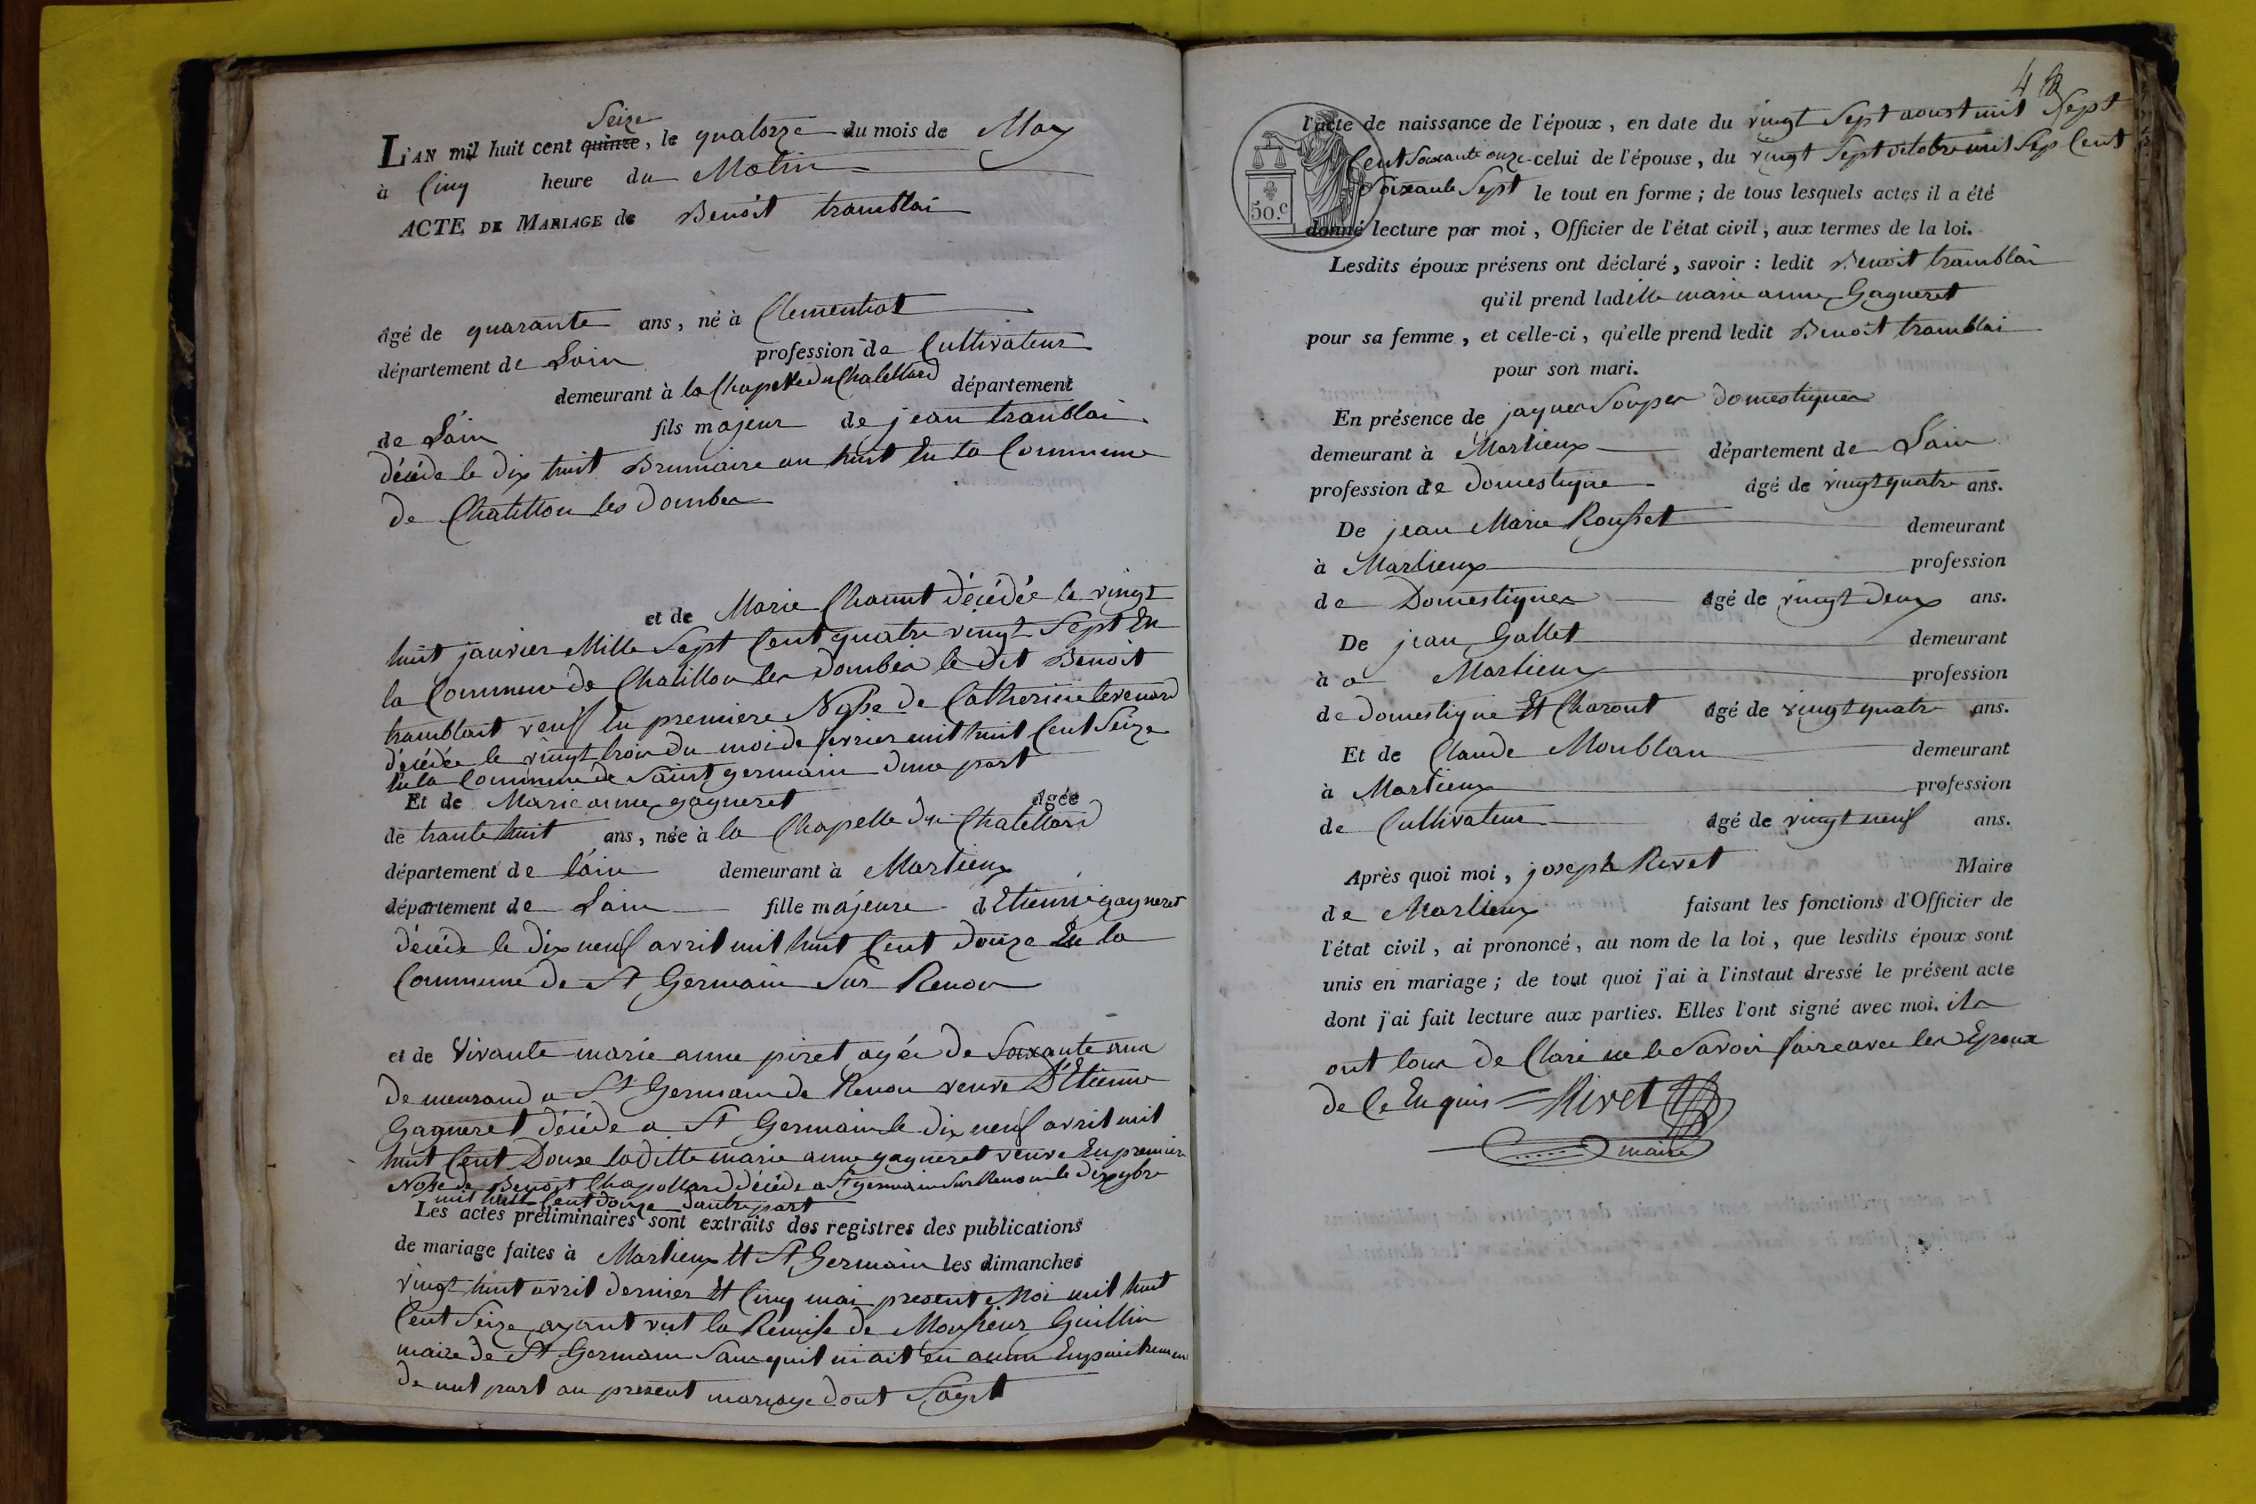 Seize
L'AN mil huit cent quinze, le quatorze du mois de May
à Cinq heure du Matin
ACTE DE MARIAGE de Benoit tramblai
âgé de quarante ans, né à Clementiat
département de Lain profession de Cultivateur
demeurant à la Chapelle du Chatellard département
de Lain fils majeur de jean tramblai
décéde le dix huit Brumaire an huit En la Commune
de Chatillon les dombes
et de Marie Charint décédée le vingt
huit janvier Mille Sept Cent quatre vingt Sept En
la Commune de Chatillon les dombes le dit Benoit
tramblait veuf En premiere Nosse de Catherine
décédée le vingt trois du moi de fevrier mil huit Cent Seize
En la Commune de Saint germain dune part
Et de Marie anne gagneret âgée
de trante huit ans, née à la Chapelle du Chatellard
département de lain demeurant à Marlieux
département de Lain fille majeure d'Etienne gagneret
décéde le dix neuf avril mil huit Cent douze En la
Commune de St Germain Sur Renon
et de Vivante marie anne piret agée de Soixante ans
demeurand a St Germain de Renon veuve D'Etienne
Gagneret décéde a St Germain le dix neuf avril mil
huit Cent Douze laditte marie anne gagneret veuve En premiere
Nosse de Benoit Chapollard décéde a St germain Sur Renon le dix 9bre
mil huit Cent douze dautre part
Les actes préliminaires sont extraits des registres des publications
de mariage faites à Marlieux Et St Germain les dimanches
vingt huit avril dernier Et Cinq mai present Moi mil huit
Cent Seize ayant vut la Remise de Monsieur Guillin
maire de St Germain Sans quil ni ait eu aucun
de nul part au present mariage dont Sagit
4
l'acte de naissance de l'époux, en date du vingt Sept aoust mil Sept
Cent Soixante onze celui de l'épouse, du vingt Sept octobre mil Sep Cent
Soixante Sept le tout en forme; de tous lesquels actes il a été
50.c
donné lecture par moi, Officier de l'état civil, aux termes de la loi.
Lesdits époux présens ont déclaré, savoir: ledit Benoit tramblai
qu'il prend ladille marie anne Gagneret
pour sa femme, et celle-ci, qu'elle prend ledit Benoit tramblai
pour son mari.
En présence de jaques Souper domestique
demeurant à Marlieux département de Lain
profession de domestique âgé de vingt quatre ans.
De jean Marie Rousset demeurant
à Marlieux profession
de Domestique âgé de vingt deux ans.
De jean Gallet demeurant
à a Marlieux profession
de domestique Et Charont âgé de vingt quatre ans.
Et de Claude Monblan demeurant
à Marlieux profession
de Cultivateur âgé de vingt neuf ans.
Après quoi moi, joseph Rivet Maire
de Marlieux faisant les fonctions d'Officier de
l'état civil, ai prononcé, au nom de la loi, que lesdits époux sont
unis en mariage; de tout quoi j'ai à l'instant dressé le présent acte
dont j'ai fait lecture aux parties. Elles l'ont signé avec moi. ils
ont tous de Claré ne le Savoir faire avec les Epoux
de Ce Enquis Rivet
maire